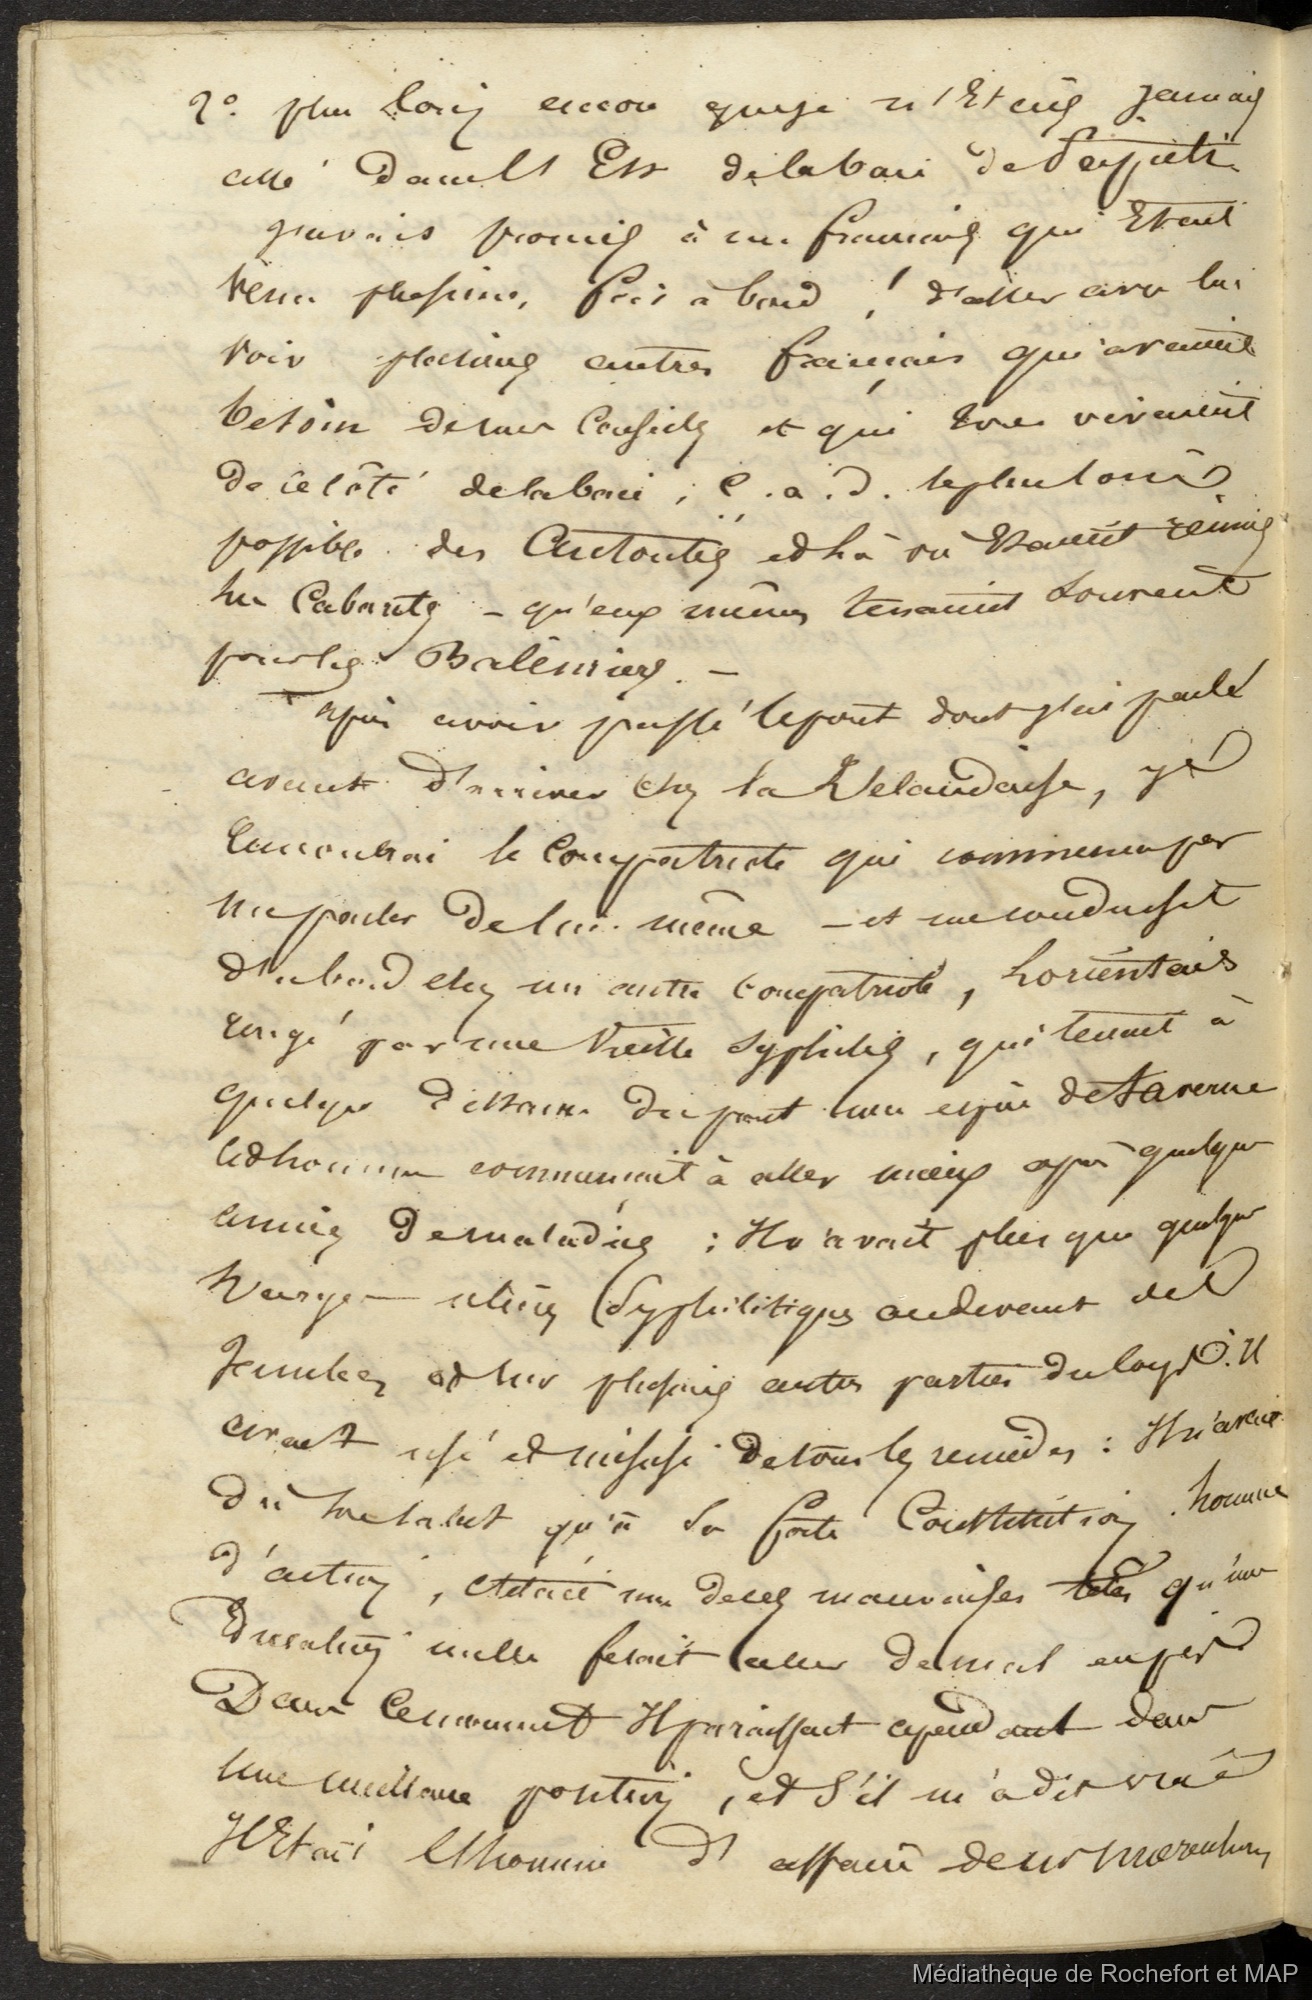 2° plus loin encore que je n'Etais jamais
allé dans l'Est de la baie de Papeïti.
j'avais promis à un français qui Etait
venu plusieurs fois à bord, d'aller avec lui
voir plusieurs autres français qui avaient
besoin de mes Conseils et qui tous vivaient
de ce côté de la baie, C.a.d. le plus loin
possible des Autorités et là où Etaient réunis
les Cabarets - qu'eux mêmes tenaient souvent
pour les Baleiniers. -
Après avoir passé le pont dont j'ai parlé
avant d'arriver chez la Irlandaise, je
rencontrai le Compatriote qui commença par
me parler de lui même - et me conduisit
d'abord chez un autre compatriote, lorientais
rongé par une vieille syphilis, qui tenait à
quelque distance du pont une espèce de taverne
cet homme commençait à aller mieux après quelques
années de maladies : Il n'avait plus que quelques
larges ulcères Syphilitiques au devant des
jambes et sur plusieurs autres parties du Corps. Il
avait usé et mésusé de tous les remèdes : Il n'avait
dû son salut qu'à sa forte Constitution. homme
d'action, c'était une de ces mauvaises têtes qu'une
Education nulle fesait aller de mal en pis
Dans ce moment Il paraissait cependant dans
une meilleure position, et s'il m'a dit vrai
Il Etait l'homme d'affaire de
Médiathèque de Rochefort et MAP